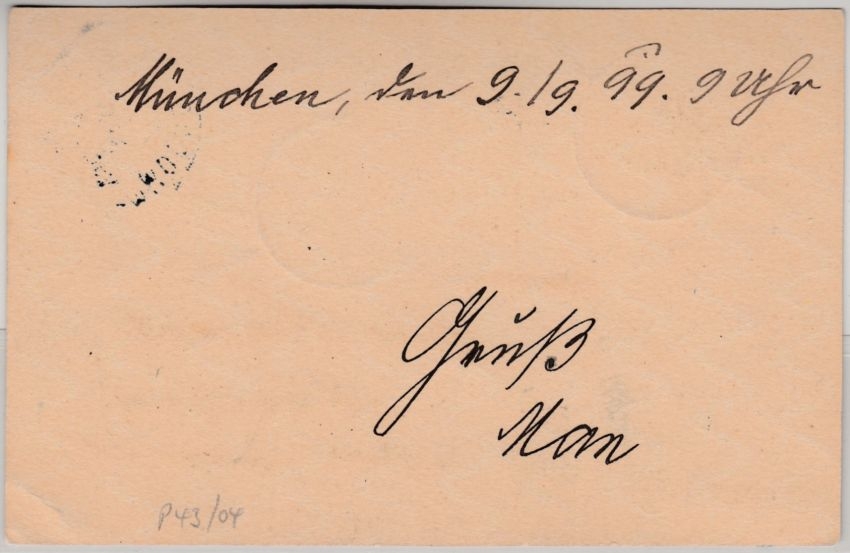 München, den 9./9. 99. 9 Uhr
Gruß
Man
P43/04